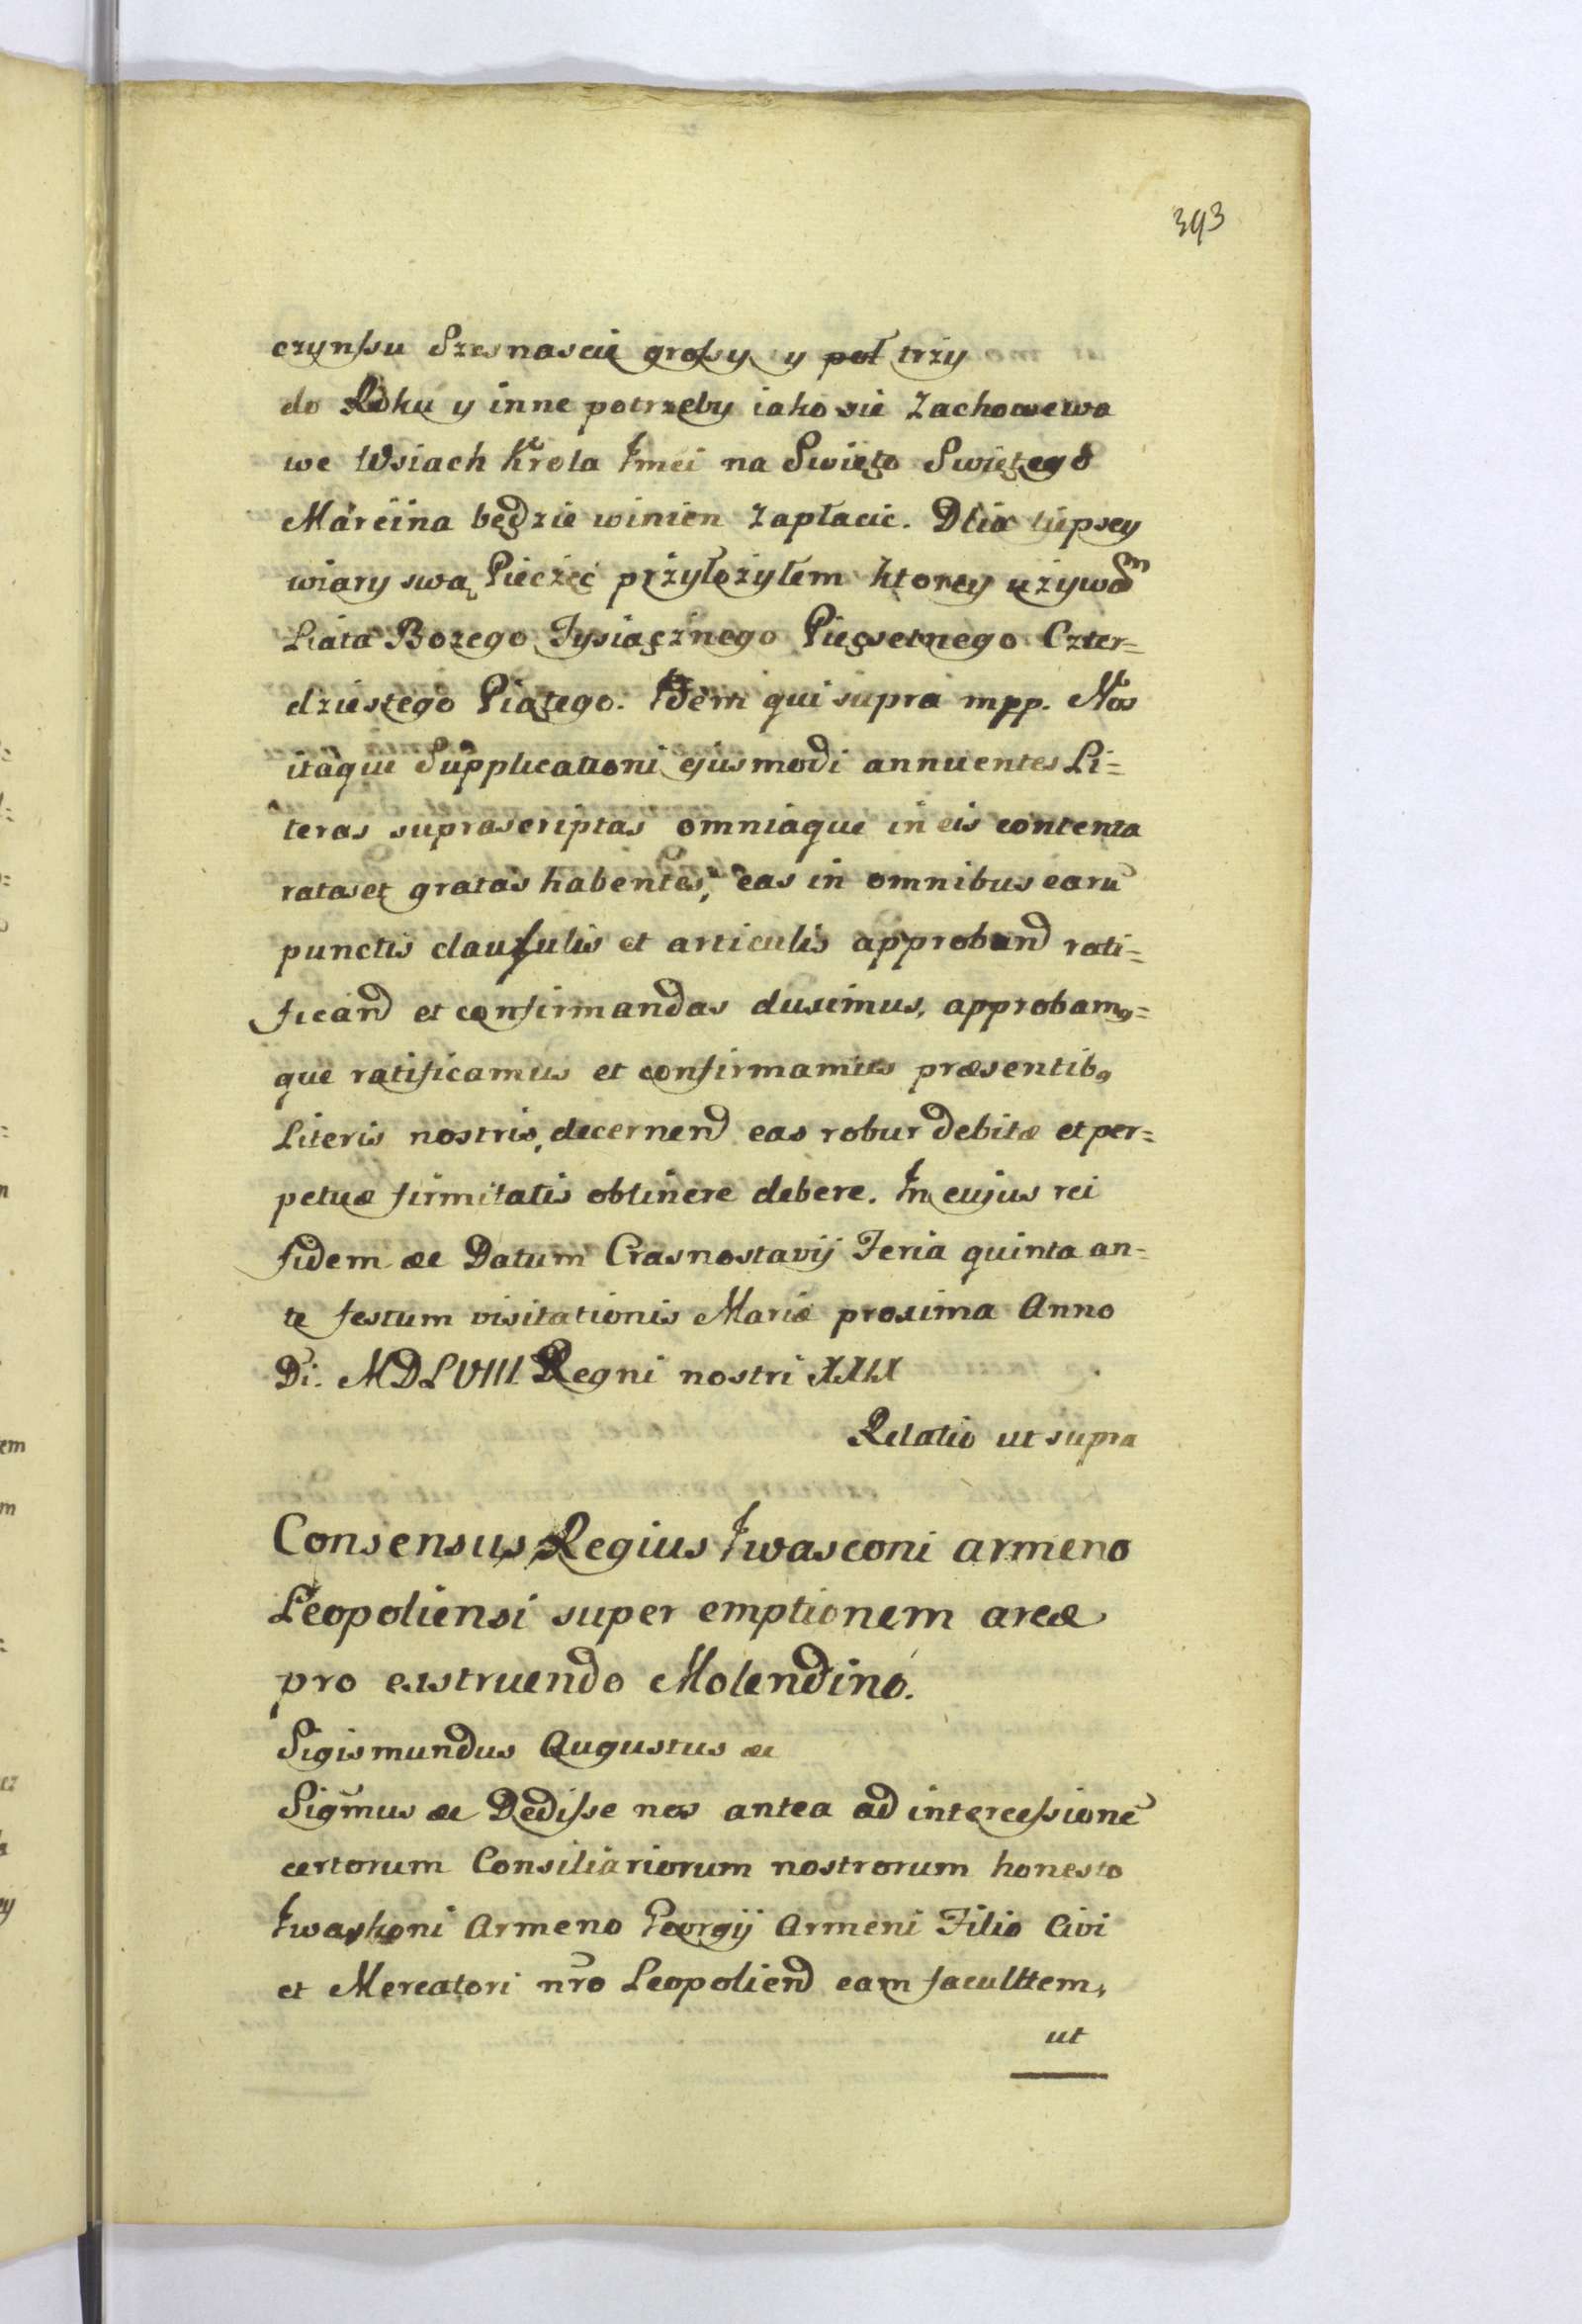 393
czynſsu Szesnascie groſsy y poł trzy
do Roku y inne potrzeby iako sie zachowewa
we Wsiach Krola Jmci na Swięto Swiętego
Marcina będzie winien zapłacic. Dlia liepsey
wiary swą Pieczęć przyłożyłem ktorey używam
Liata Bozego Tysiącznego Pięcsetnego Czter=
dziestego Piątego. Idem qui supra mpp. Nos
itaque Supplicationi ejusmodi annuentes Li=
teras suprascriptas omniaque in eis contenta
ratas et gratas habentes, eas in omnibus earū
punctis clausulis et articulis approband rati=
ficand et confirmandas duximus, approbamq=
que ratificamus et confirmamus præsentibq
Literis nostris, decernend eas robur debitæ et per=
petuæ firmitatis obtinere debere. In cujus rei
fidem æc Datum Crasnostavij Feria quinta an=
te festum visitationis Mariæ proxima Anno
Di. MDLVIII Regni nostri XXIX
Relatio ut supra
Consensus Regius Iwasconi armeno
Leopoliensi super emptionem areæ
pro exstruendo Molendino.
Sigismundus Augustus æc
Sigm̄us æc Dediſse nos antea ad interceſsionē
certorum Consiliariorum nostrorum honesto
Iwaskoni Armeno Georgij Armeni Filio Civi
et Mercatori nr̄o Leopoliend eam facultem,
ut